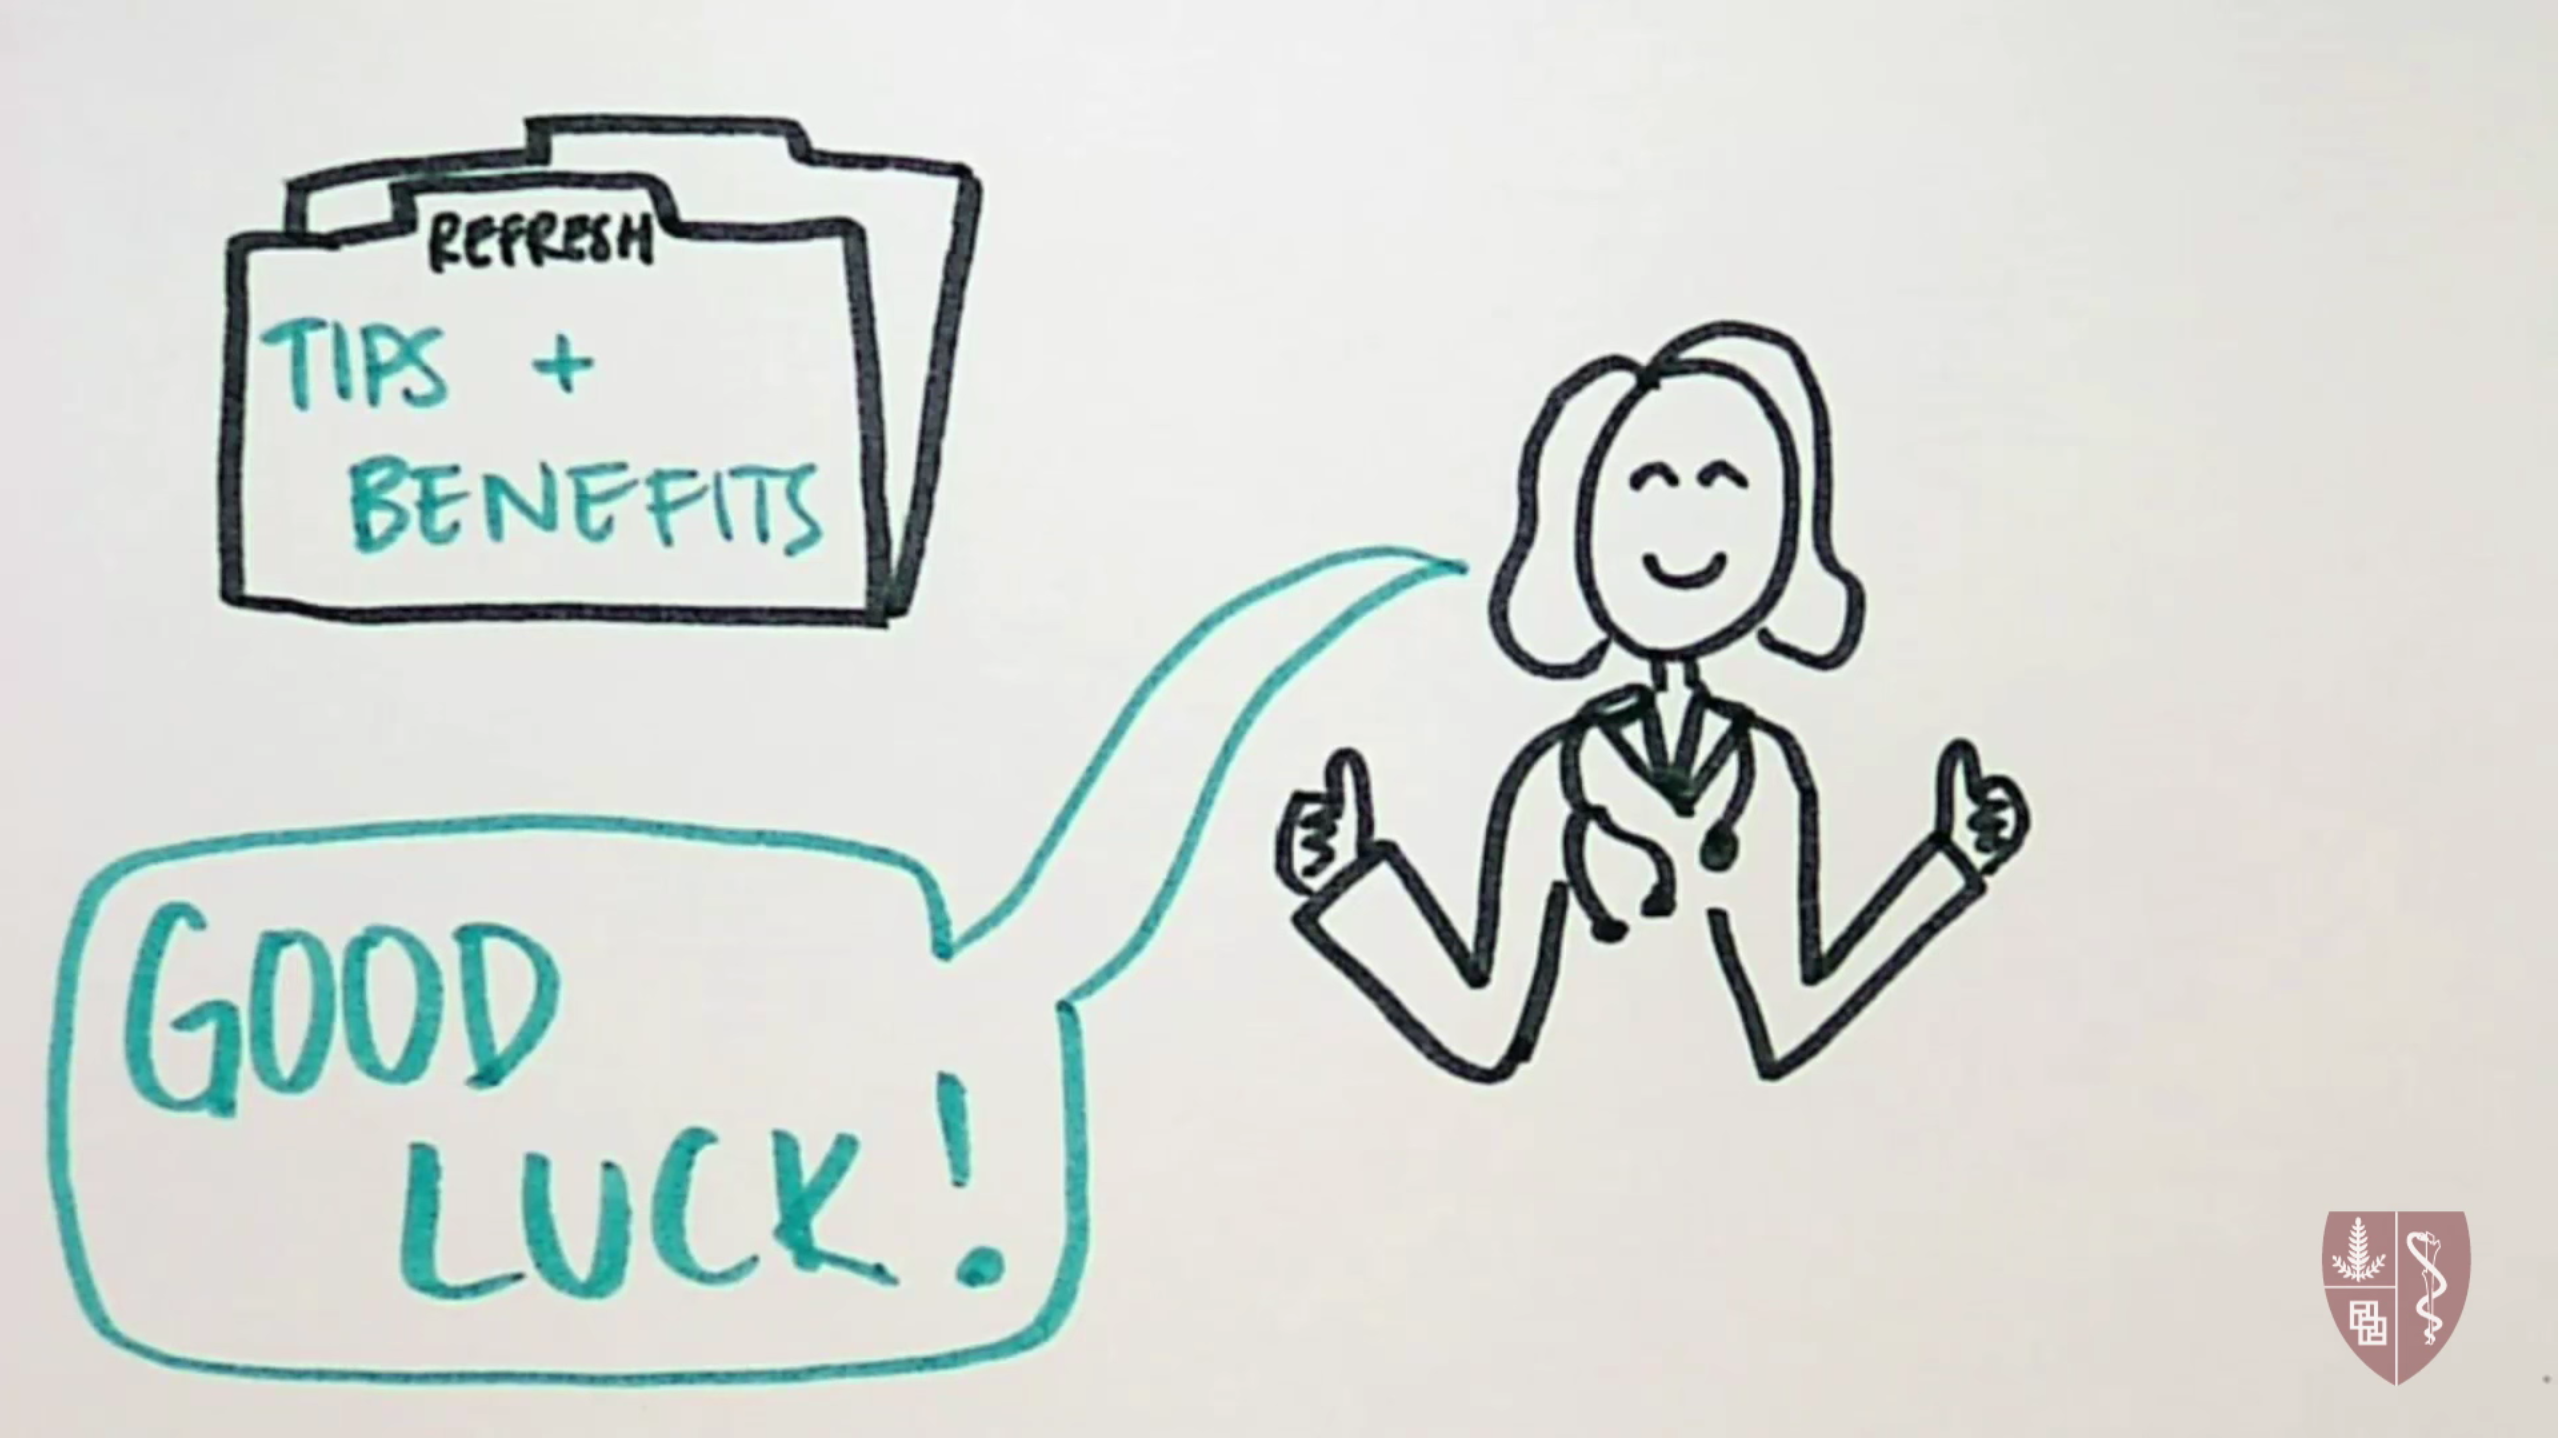 REFRESH
TIPS +
BENEFITS
GOOD
LUCK!